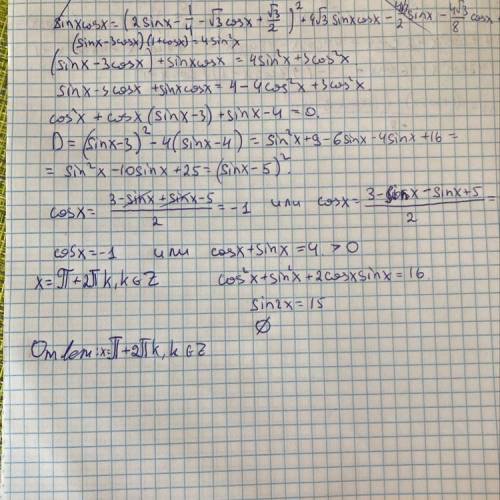 sinxcosx = (2sinx - 1/4 - √3cosx + √3/2)² + 4√3sinxcosx - sinx - 4√3/8 cosx
(sinx-3cosx)(1+cosx) = 4sin²x
(sinx-3cosx) + sinxcosx = 4sin²x + 3cos²x
sinx - 3cosx + sinxcosx = 4 - 4cos²x + 3cos²x.
cos²x + cosx(sinx-3) + sinx - 4 = 0.
D = (sinx-3)² - 4(sinx-4) = sin²x + 9 - 6sinx - 4sinx + 16 =
= sin²x - 10sinx + 25 = (sinx-5)².
cosx = (3 - sinx + sinx - 5)/2 = -1 или cosx = (3 - sinx - sinx + 5)/2 =
cosx = -1 или cosx + sinx = 4 > 0
x = π + 2πk, k ∈ Z cos²x + sin²x + 2cosxsinx = 16
sin2x = 15
∅
Ответ: x = π + 2πk, k ∈ Z